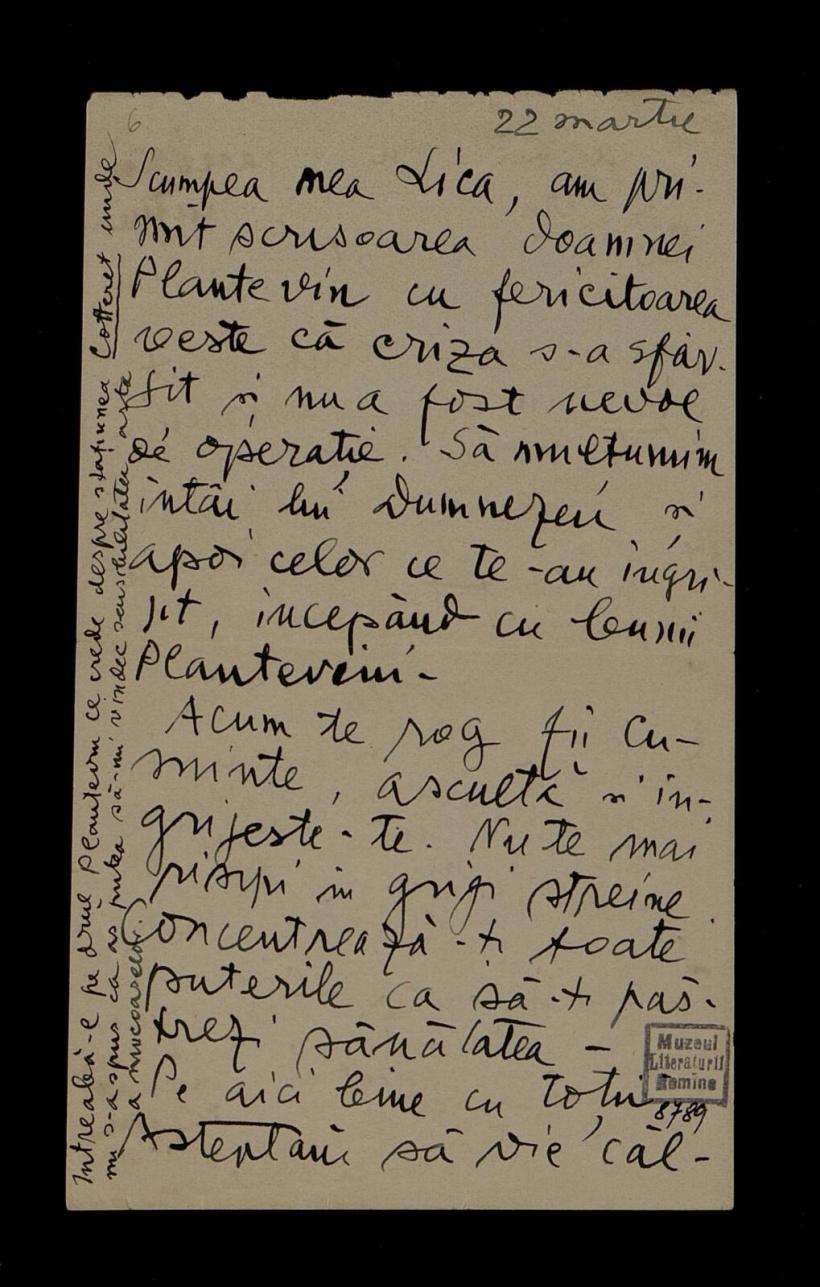 6
22 martie
Scumpea mea Lica, am pri-
mit scrisoarea doamnei
Plantevin cu fericitoarea
veste că criza s-a sfâr-
șit și nu a fost nevoe
de operație. Să mulțumim
întâi lui Dumnezeu și
apoi celor ce te-au îngri-
jit, începând cu bunii
Plantevini-
Acum te rog fii cu-
minte, ascultă și în-
grijește-te. Nu te mai
risipi în griji streine.
Concentrează-ți toate
puterile ca să-ți păs-
trezi sănătatea -
Pe aici bine cu toții
Așteptăm să vie căl-
Muzeul
Literaturii
Romîne
8789
Intreabă-l pe drul Plantevin ce crede despre stațiunea Cotteret unde
mi s-a spus că aș putea să-mi vindec sensibilitatea asta
a mucoaselor.